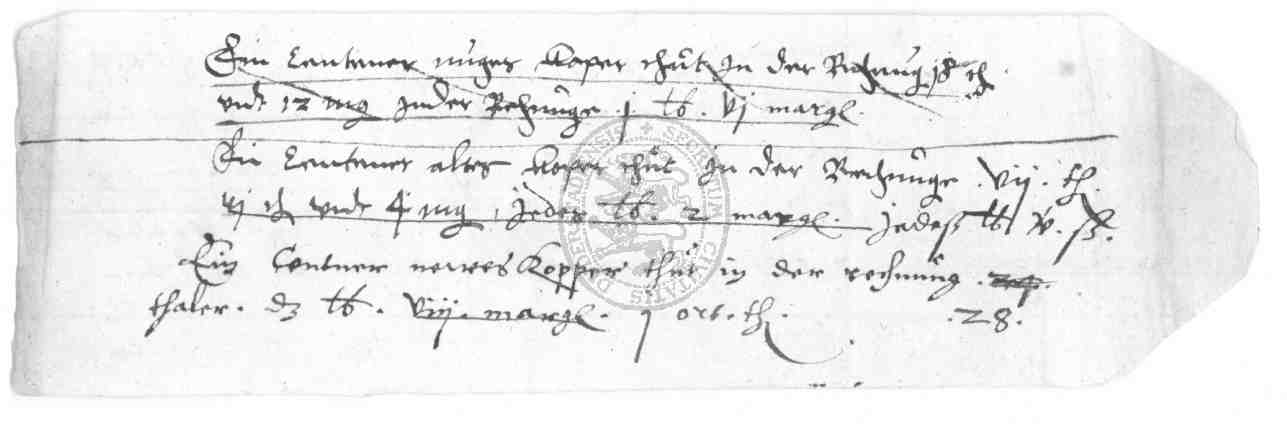 Ein Centener nuges Koper thut In der Rechnug 18 th
vnd 12 mg Jn der Rechnuge j lb. vj margl.
Ein Centener altes Koper thut In der Rechnuge . vij . th.
vj th vnd 4 mg , Jeder lb. 2 margl. Jedeß lb v. ß.
Ein Centner newes Kopper thut in der rechnung
thaler . dz lb . viij . margl. j ort . th . .28.
SPECIUM CIVITATIS